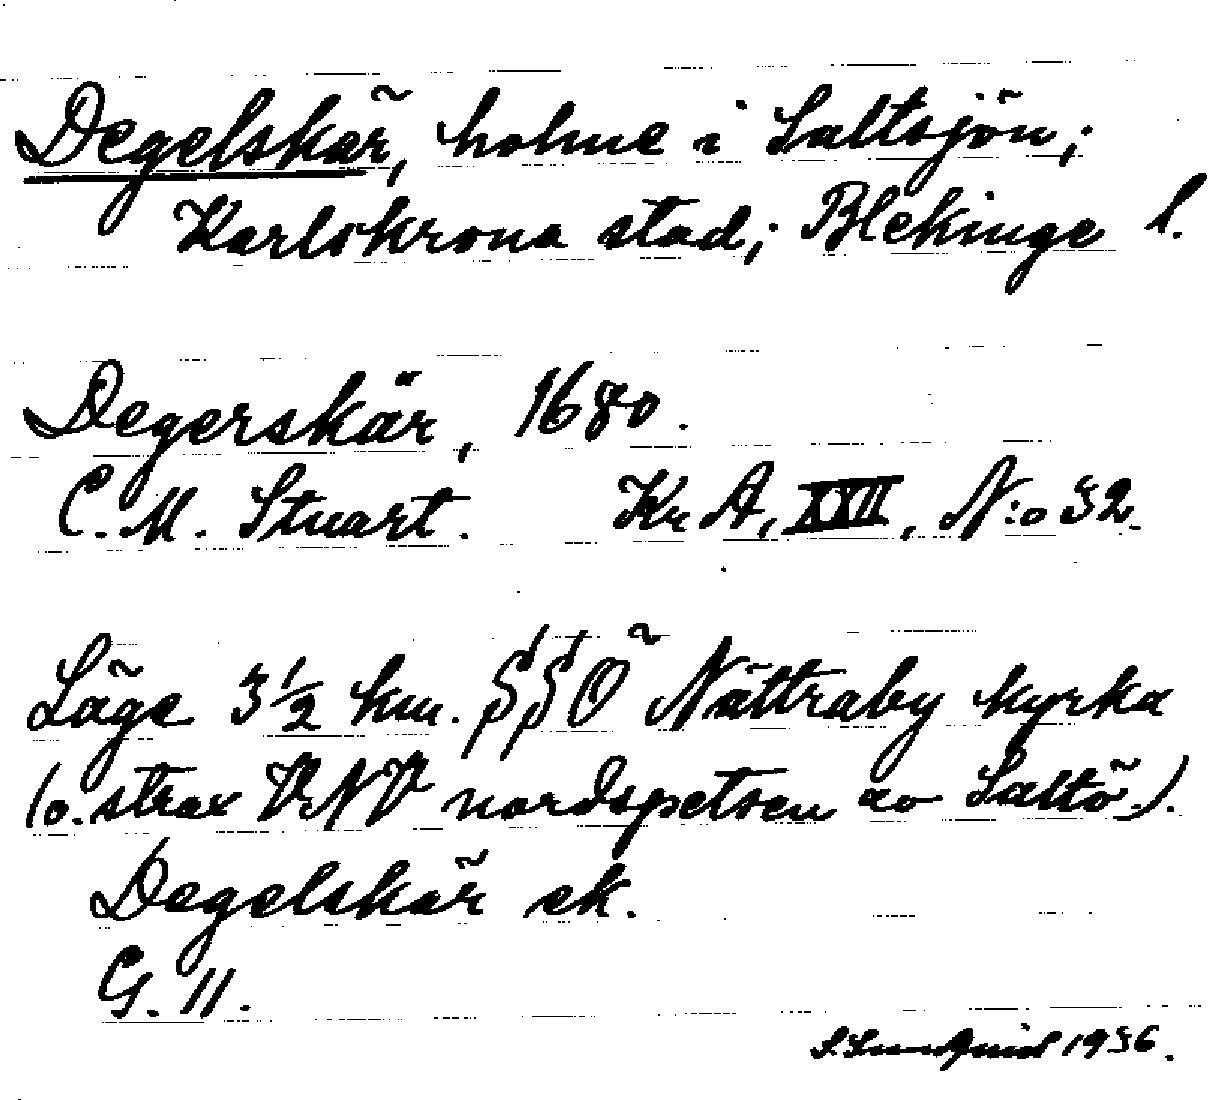 Degelskär, holme i Saltsjön;
Karlskrona stad; Blekinge l.
Degerskär, 1680.
C. M. Stuart. Kr A, XXII, N:o 32.
Läge 3 1/2 km. SSÖ Nättraby kyrka
(o. strax VNV nordspetsen av Saltö.).
Degelskär ek.
G. 11.
1936.